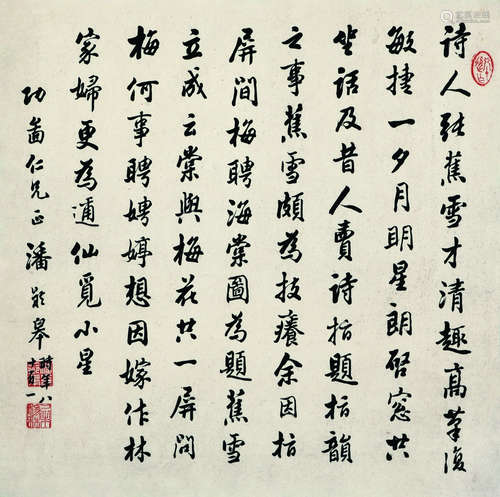 詩人張蕉雪才清趣高筆復
敏捷一夕月明星朗啓窓共
坐話及昔人賣詩指題指韻
之事蕉雪頗為技癢余因指
屏間梅聘海棠圖為題蕉雪
立成云棠與梅花共一屏問
梅何事聘娉婷想因嫁作林
家婦更為逋仙覓小星
功仁兄正潘齡皋
時年八
十有一